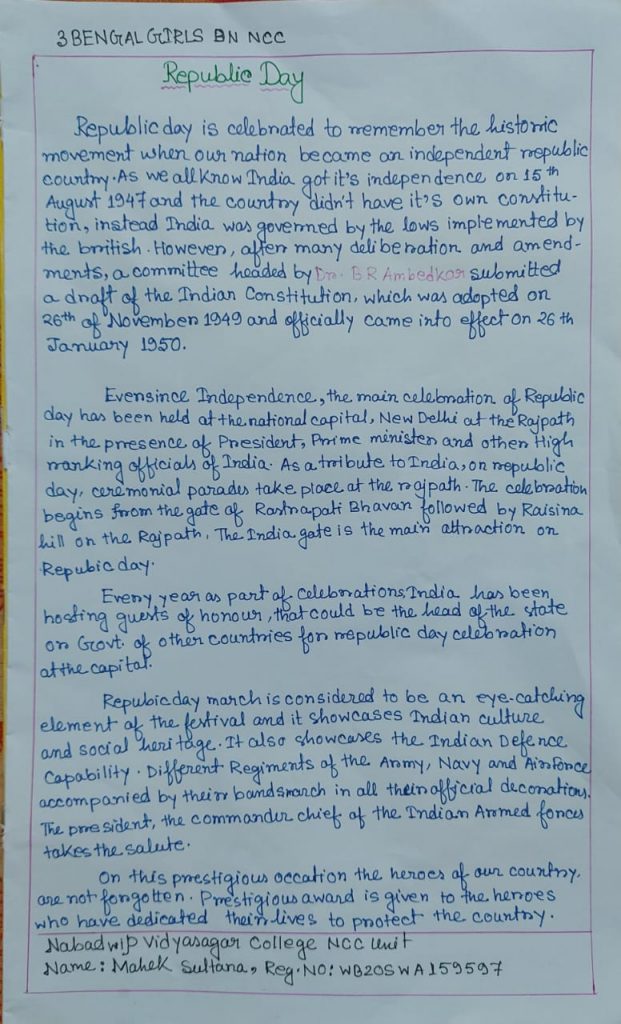 3 BENGAL GIRLS BN NCC
Republic Day
Republic day is celebrated to remember the historic
movement when our nation became an independent republic
country. As we all know India got it's independence on 15 th
August 1947 and the country didn't have it's own constitu-
tion, instead India was governed by the lows implemented by
the british. However, after many deliberation and amend-
ments, a committee headed by Dr. B R Ambedkar submitted
a draft of the Indian Constitution, which was adopted on
26th of November 1949 and officially came into effect on 26 th
January 1950.
Eversince Independence, the main celebration of Republic
day has been held at the national capital, New Delhi at the Rajpath
in the presence of President, Prime minister and other High
ranking officials of India. As a tribute to India, on republic
day, ceremonial parades take place at the rajpath. The celebration
begins from the gate of Rastrapati Bhavan followed by Raisina
hill on the Rajpath. The India gate is the main attraction on
Repubic day.
Every year as part of celebrations, India has been
hosting guests of honour, that could be the head of the state
or Govt. of other countries for republic day celebration
at the capital.
Repubic day march is considered to be an eye-catching
element of the festival and it showcases Indian culture
and social heritage. It also showcases the Indian Defence
Capability. Different Regiments of the Army, Navy and Air Force
accompanied by their bands march in all their official decorations.
The president, the commander chief of the Indian Armed forces
takes the salute.
On this prestigious occation the heroes of our country.
are not forgotten. Prestigious award is given to the heroes
who have dedicated their lives to protect the country.
Nabadwip Vidyasagar College NCC Unit
Name: Mahek Sultana, Reg. NO: WB20SWA159597